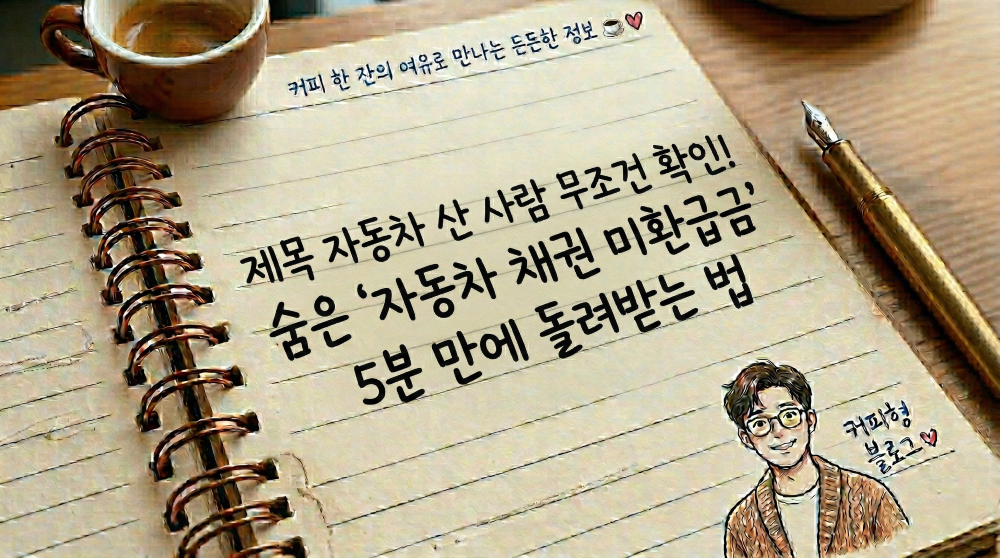 커피 한 잔의 여유로 만나는 든든한 정보
제목 자동차 산 사람 무조건 확인!
숨은 ‘자동차 채권 미환급금’
5분 만에 돌려받는 법
커피형
블로그